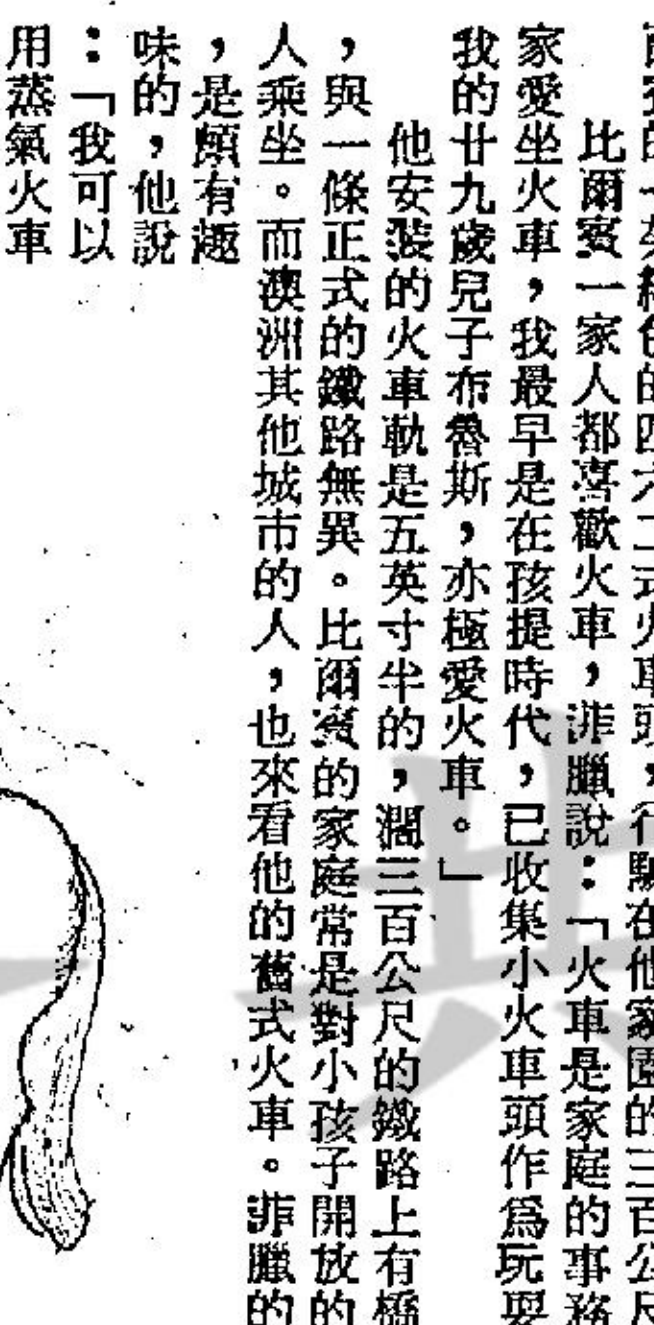 的一架綠色的四六二式火車頭，行駛在他家園的三百公尺
比爾賓一家人都喜歡火車，菲臘說：「火車是家庭的事務
家愛坐火車，我最早是在孩提時代，已收集小火車頭作爲玩耍
我的廿九歲兒子布魯斯，亦極愛火車。」
他安裝的火車軌是五英寸半的，濶三百公尺的鐵路上有橋
，與一條正式的鐵路無異。比爾賓的家庭常是對小孩子開放的
人乘坐。而澳洲其他城市的人，也來看他的舊式火車。菲臘的
，是頗有趣
味的，他說
：「我可以
用蒸氣火車